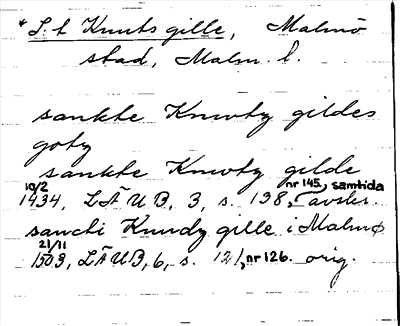 * S:t Knuts gille, Malmö
stad, Malm. l.
sankte Knwtz gildes
gotz
sankte Knwtz gilde
10/2 nr 145, samtida
1434, LÄUB, 3, s. 138, avskr.
sancti Knudz gille i Malmø
21/11
1503, LÄUB, 6, s. 121, nr 126. orig.